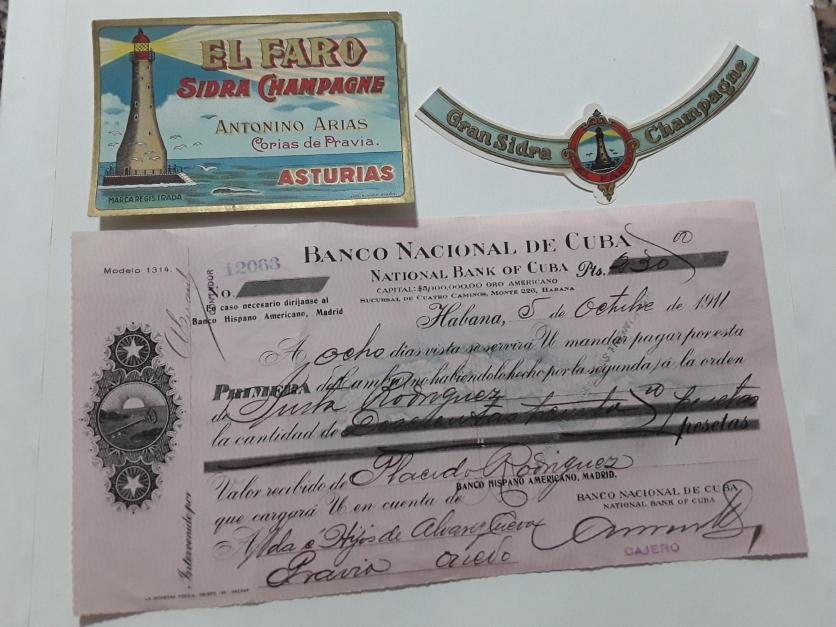 EL FARO
SIDRA CHAMPAGNE
ANTONINO ARIAS
Corias de Pravia.
ASTURIAS
MARCA REGISTRADA
Gran Sidra Champagne
BANCO NACIONAL DE CUBA
Modelo 1314.
12063
NATIONAL BANK OF CUBA Pts. 230 00
CAPITAL: $5,000,000.00 ORO AMERICANO
SUCURSAL DE CUATRO CAMINOS, MONTE 226, HABANA
NO.
En caso necesario dirijanse al
Banco Hispano Americano, Madrid
Habana, 5 de Octubre de 1911
A ocho dias vista se servirá U mandar pagar por esta
PRIMERA de Cambio (no habiendolo hecho por la segunda) á la orden
de Justa Rodriguez
la cantidad de Doscientas treinta 00 pesetas
pesetas
Valor recibido de Placido Rodriguez
BANCO HISPANO AMERICANO, MADRID.
que cargará U en cuenta de
BANCO NACIONAL DE CUBA
NATIONAL BANK OF CUBA
A Vda e Hijos de
Pravia Oviedo
CAJERO
Intervenido por